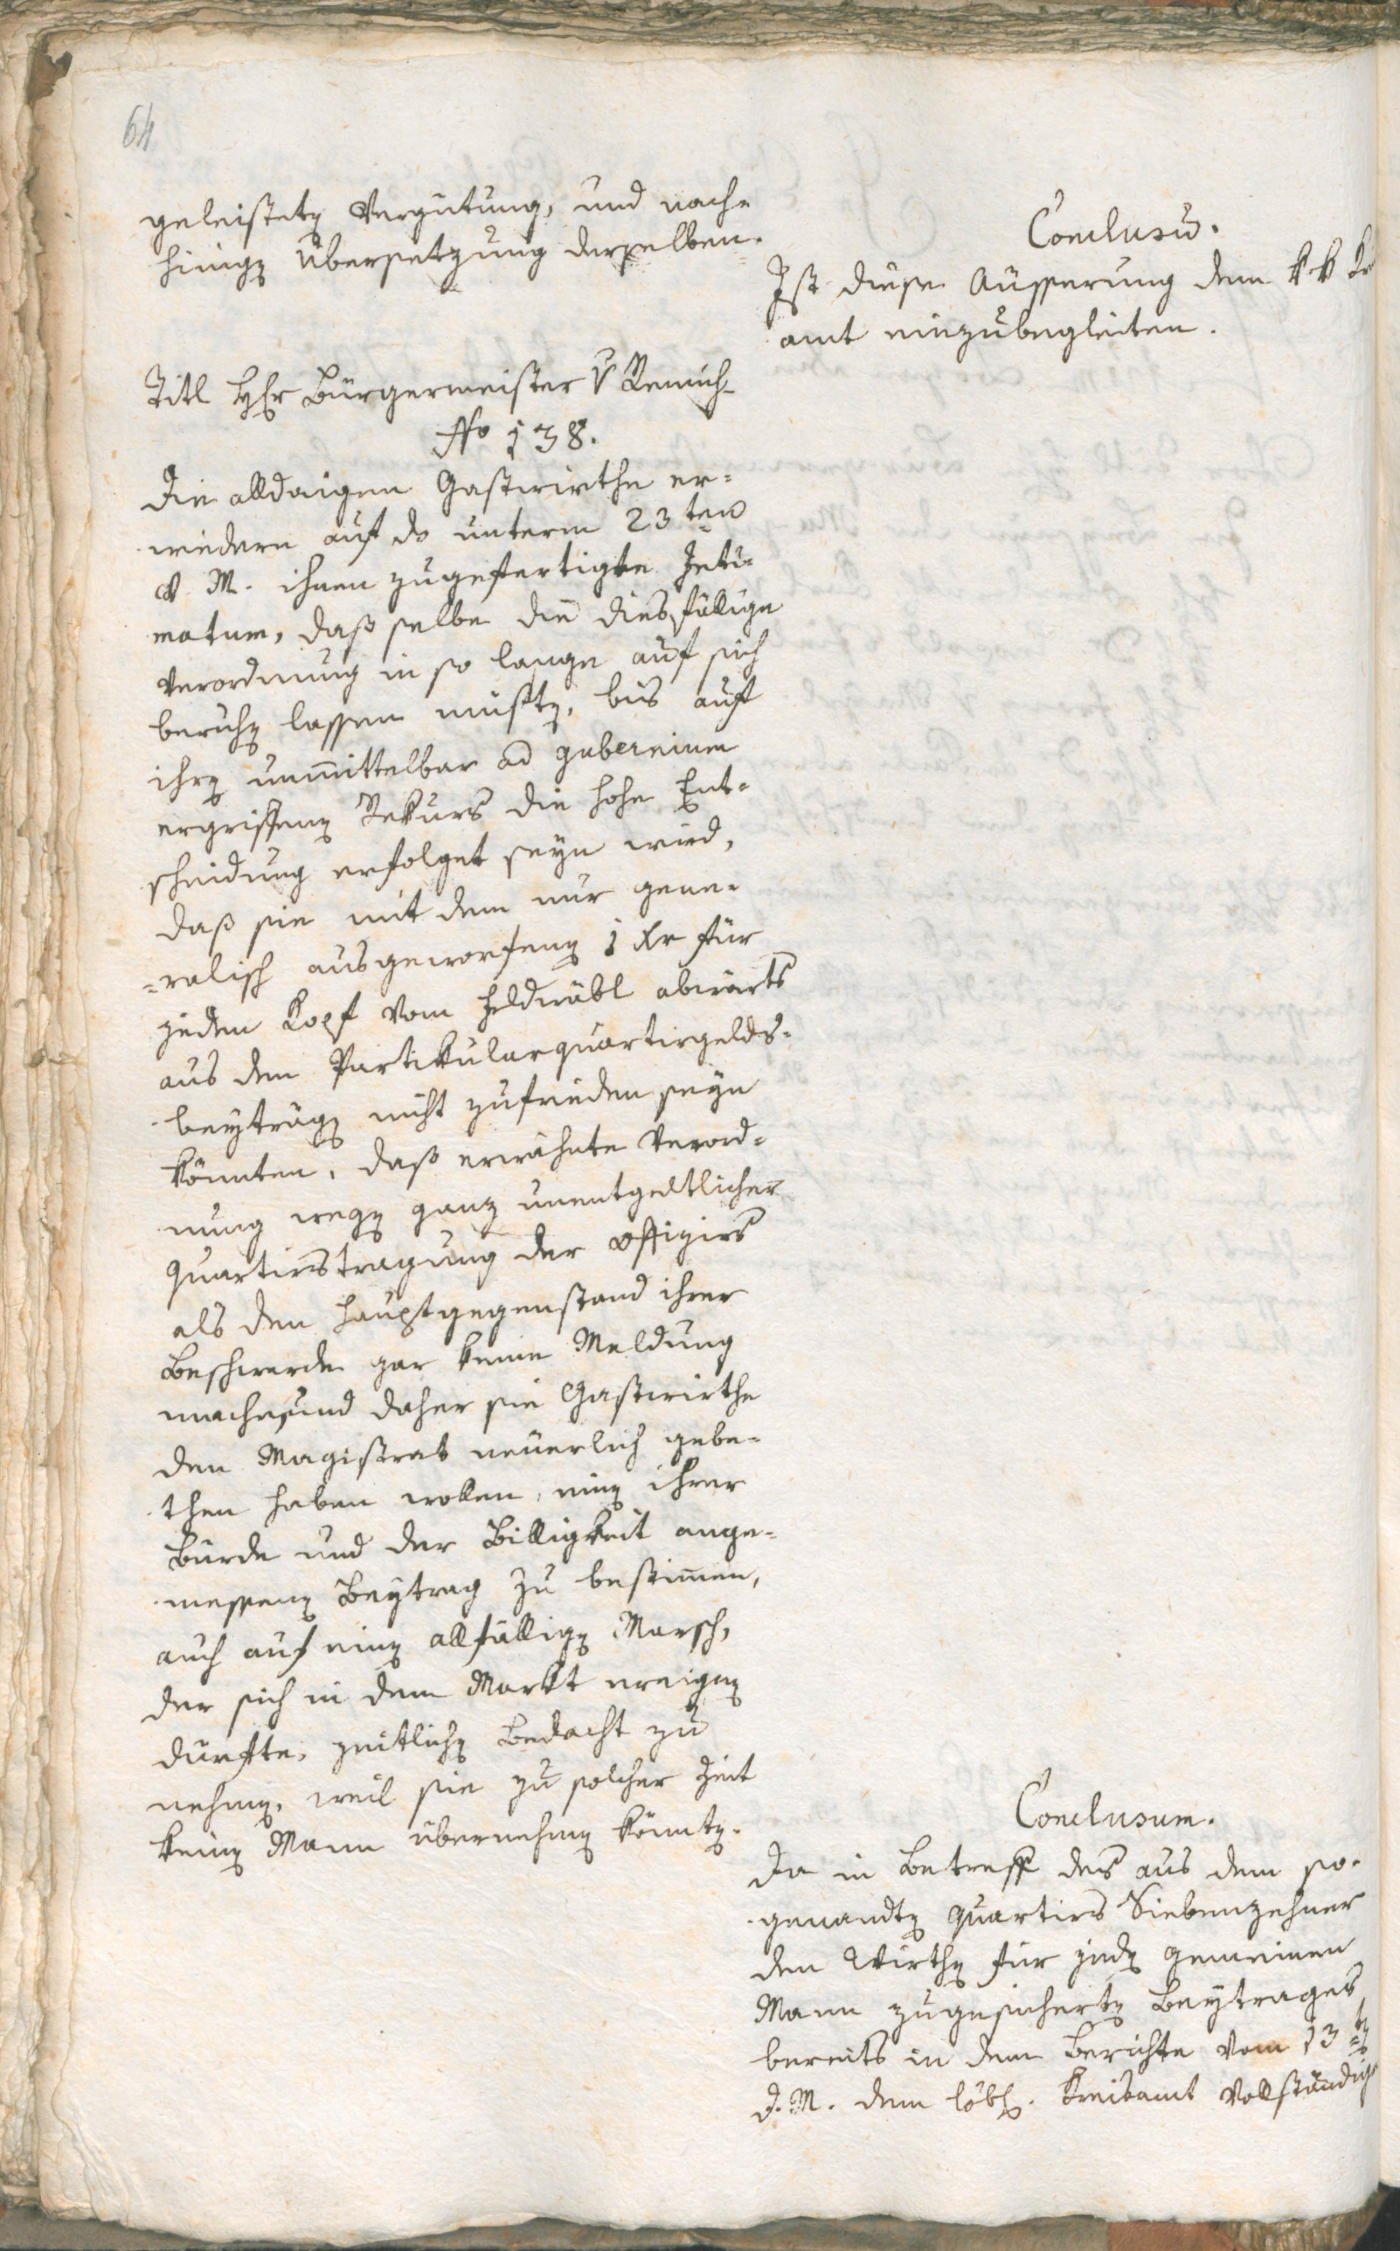 64
geleisteten Vergütung, und nach-
hinigen Übersetzung derselben.
Conclusum.
Ist diese Äusserung dem k k Kr
amt einzubegleiten.
Titl Hr Bürgermeister v Remich
No 138.
Die alldaigen Gastwirthe er=
wiedern auf do unterm 23ten
v. M. ihnen zugefertigte Inti=
matum, daß selbe die diesfällige
Verordnung in so lange auf sich
beruhen lassen müsten, bis auf
ihren unmittelbar ad gubernium
ergriffenen Rekurs die hohe Ent=
scheidung erfolget seyn wird,
daß sie mit dem nur gene=
=ralisch ausgeworfenen 1 Kr für
jeden Kopf vom Feldwäbl abwärts
aus dem Partikularquartirgelds=
beyträgen nicht zufrieden seyn
könnten, daß erwähnte Verord=
nung wegen ganz unentgeltlicher
Quartirstragung der Offizirs
als den Hauptgegenstand ihrer
Beschwerde gar keine Meldung
mache, und daher sie Gastwirthe
den Magistrat neuerlich gebe=
then haben wollen, einen ihrer
Bürde und der Billigkeit ange=
messenen Beytrag zu bestimmen,
auch auf einen allfälligen Marsch,
der sich in dem Markt ereignen
dürfte, zeitlichen Bedacht zu
nehmen, weil sie zu solcher Zeit
keinen Mann übernehmen könnten.
Conclusum.
Da in Betreff des aus dem so=
genandten Quartirs Siebenzehner
den Wirthen für jeden gemeinen
Mann zugesicherten Beytrages
bereits in dem Berichte vom 13ten
d. M. dem löbl. Kreisamt vollständig